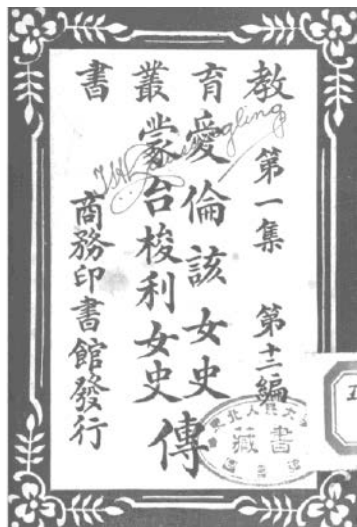 教育叢書
第一集 第十二編
愛倫該女史
蒙台梭利女史
傳
商務印書館發行
北人
藏書